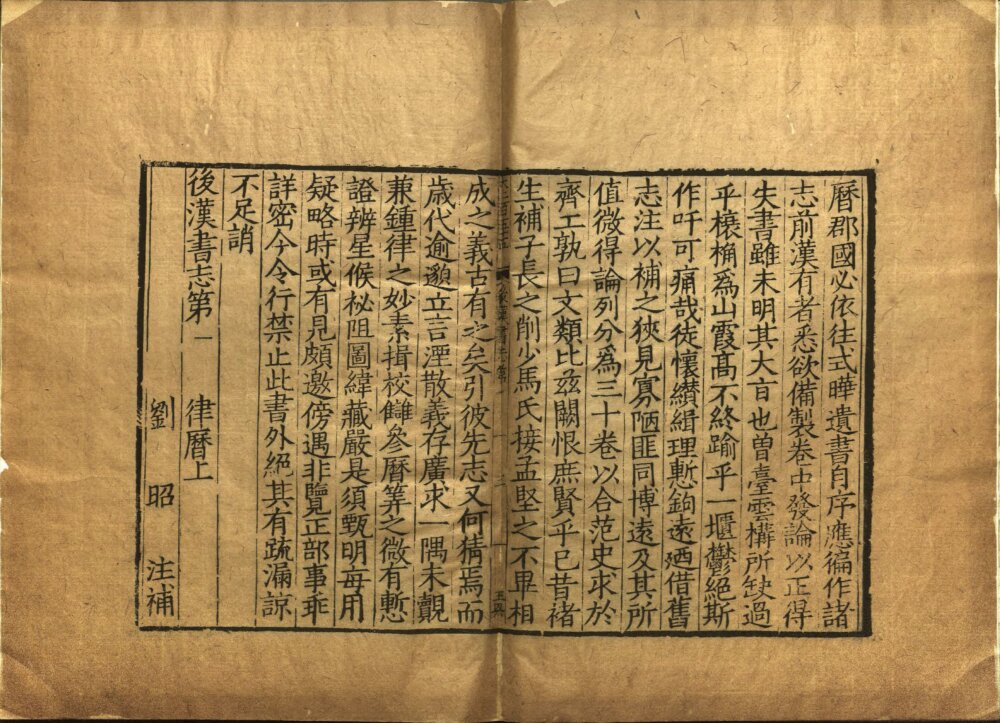 曆郡國必依往式曄遺書自序應徧作諸
志前漢有者悉欲備製卷中發論以正得
失書雖未明其大㫖也曽臺雲構所缺過
乎榱桷爲山霞髙不終踰乎一壥鬱絕斯
作吁可痛哉徒懷纉緝理慙鉤遠廼借舊
志注以補之狹見寡陋匪同博遠及其所
值微得論列分爲三十卷以合范史求於
齊工孰曰文類比兹闕恨庶賢乎已昔褚
生補子長之削少馬氏接孟堅之不畢相
成之義古有之矣引彼先志又何猜焉而
歳代逾邈立言湮散義存廣求一隅未覿
兼鍾律之妙素揖校讎叅曆筭之微有慙
證辨星候祕阻圖緯藏嚴是須甄明每用
疑略時或有見頗邀傍遇非覽正部事乖
詳密今令行禁止此書外絕其有疏漏諒
不足誚
後漢書志第一 律曆上
劉 昭 注補